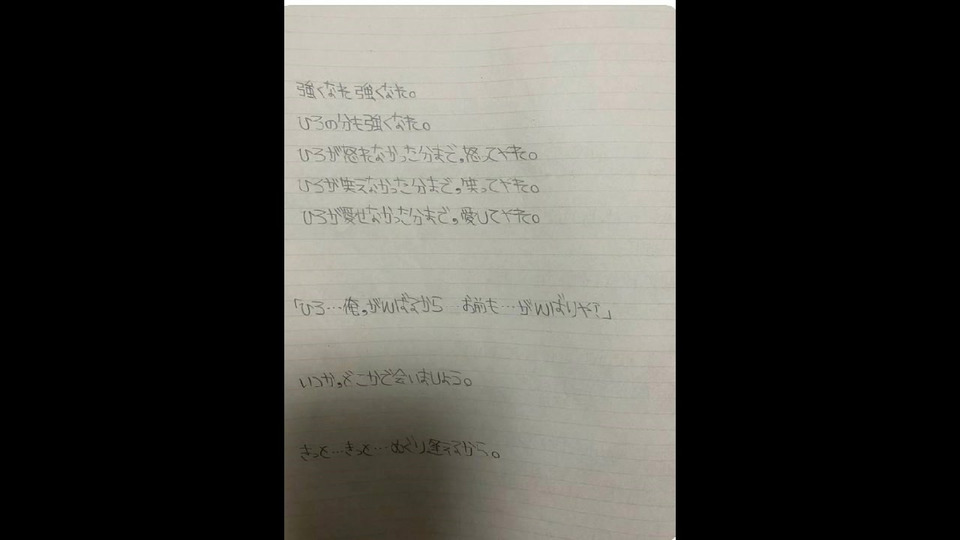 強くなれ 強くなれ。
ひろの分も強くなれ。
ひろが怒れなかった分まで,怒ってやれ。
ひろが笑えなかった分まで,笑ってやれ。
ひろが愛せなかった分まで,愛してやれ。
「ひろ…俺,がんばるから お前も…がんばりや?」
いつか,どこかで会いましょう。
きっと…きっと…めぐり逢えるから。